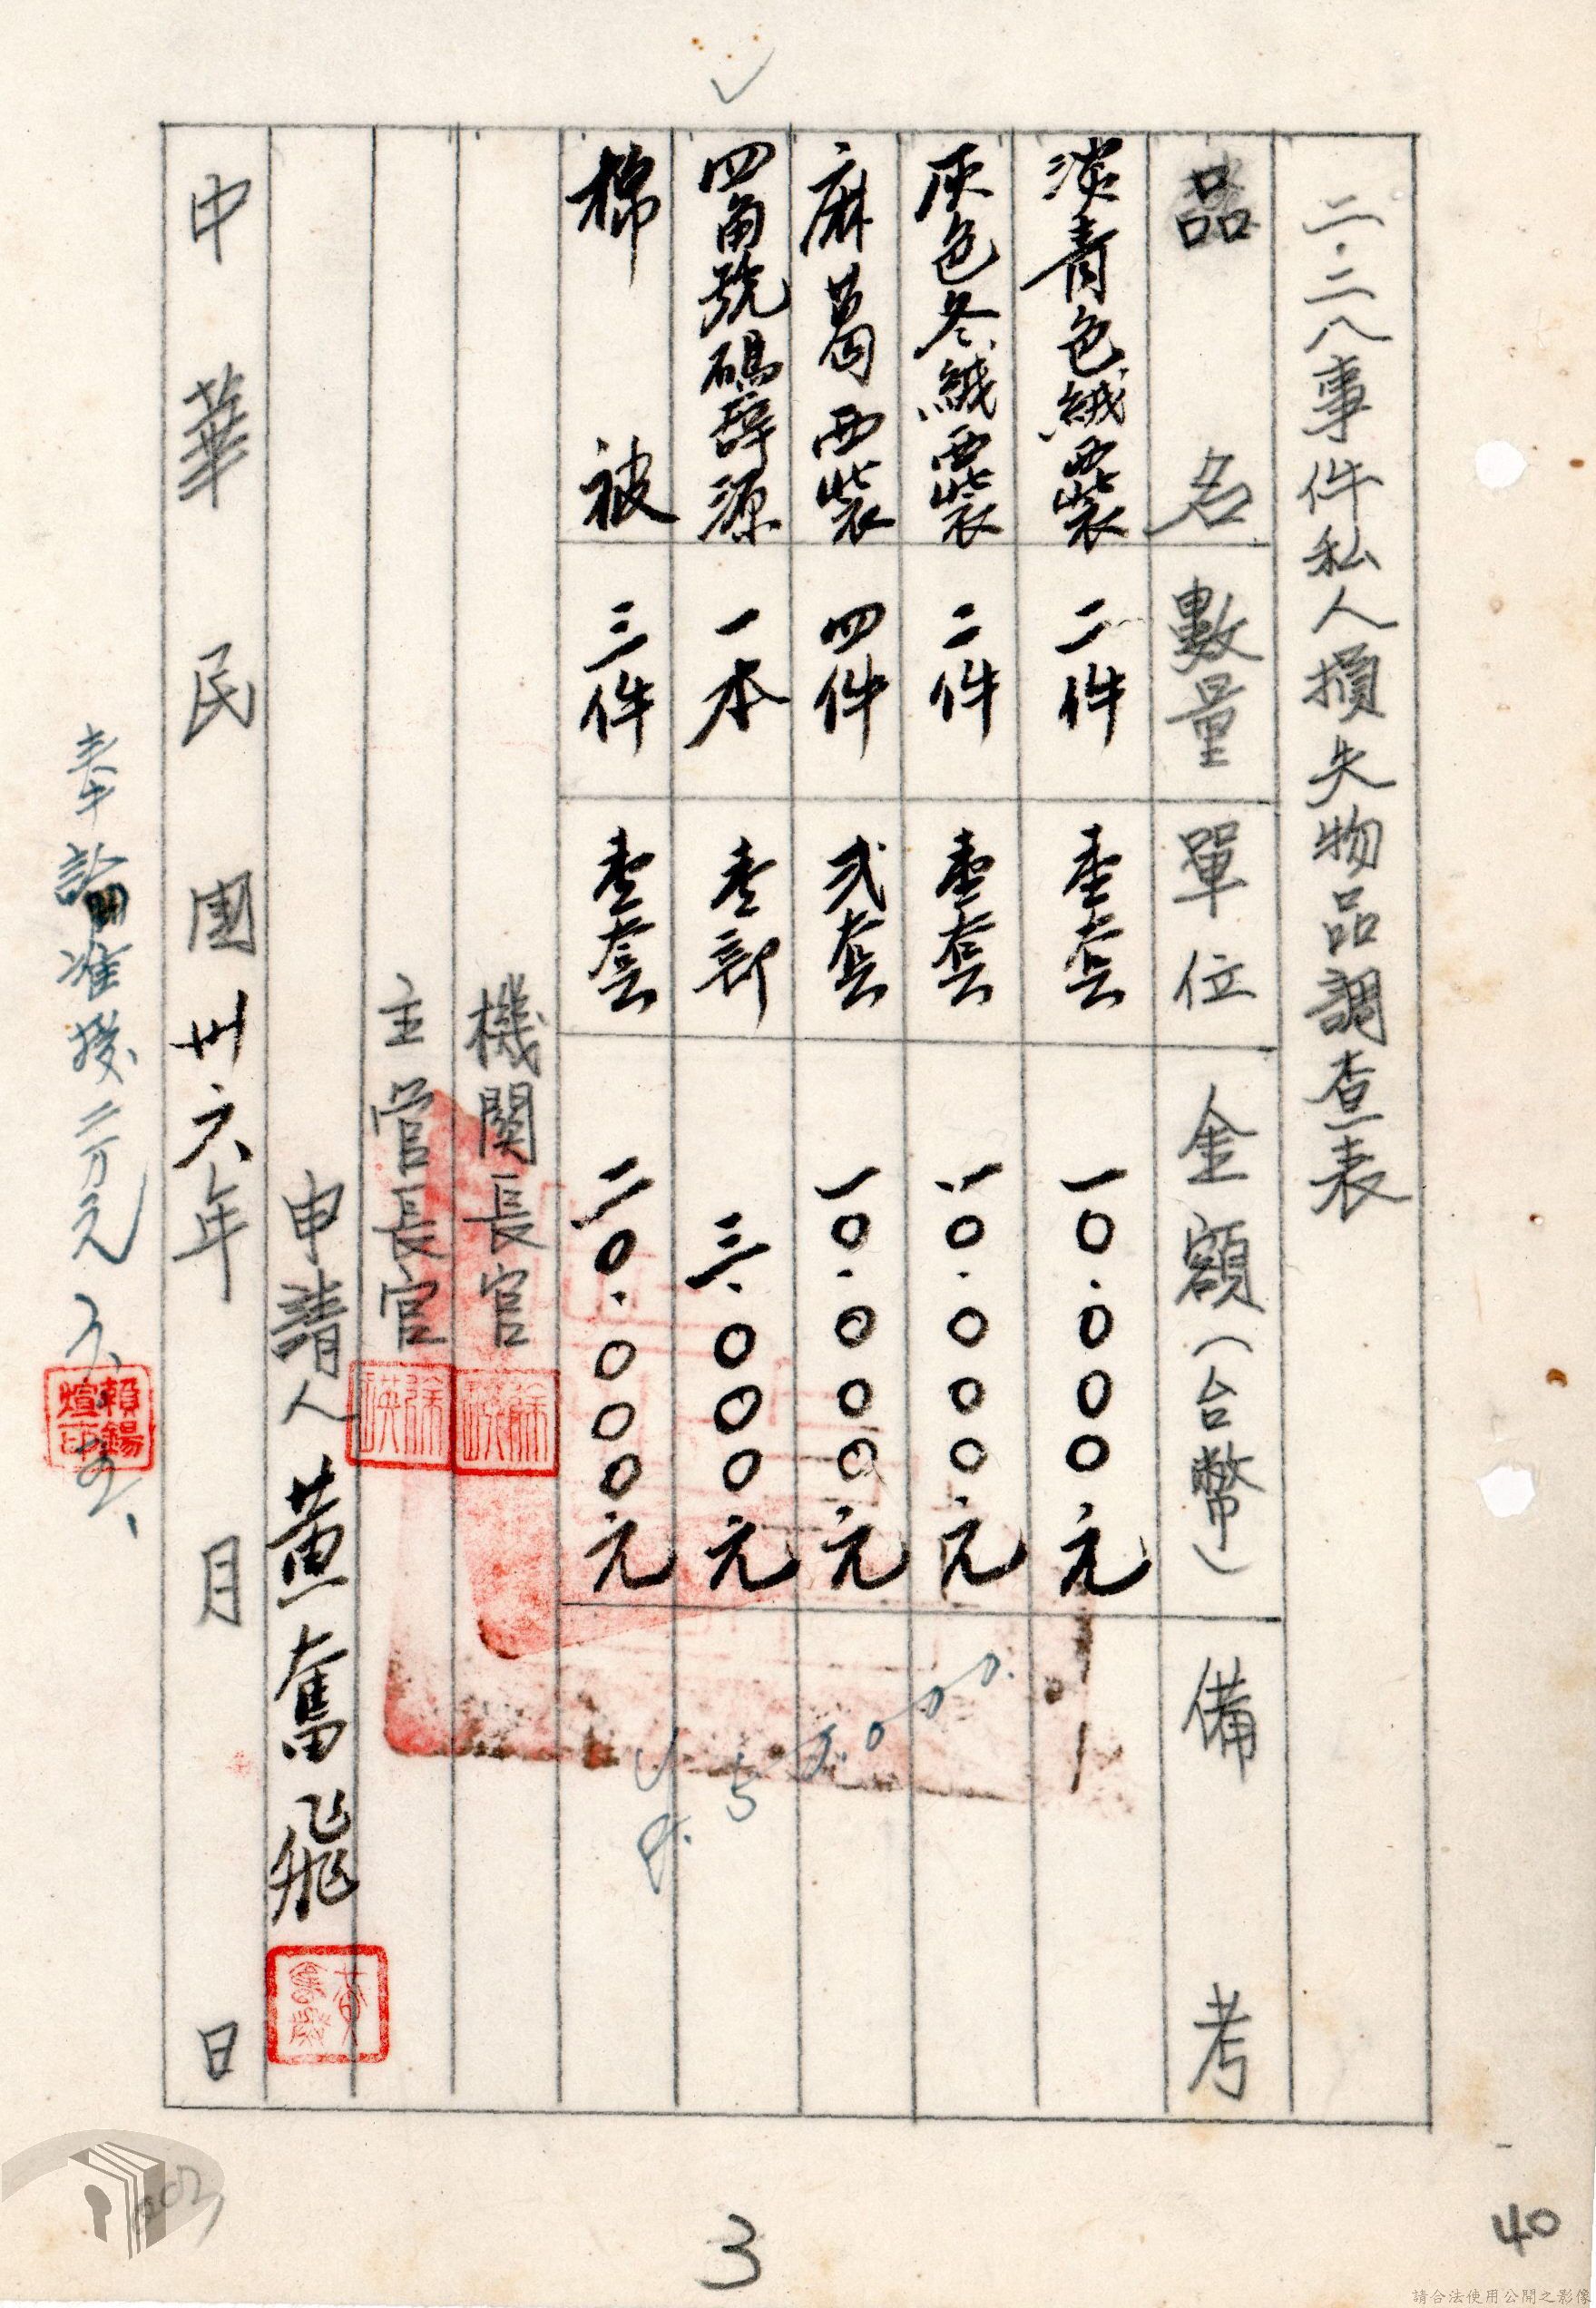 二．二八事件私人損失物品調查表
品名 數量 單位 金額(台幣) 備考
淡青色絨西裝 二件 壹套 一〇．〇〇〇元
灰色冬絨西裝 二件 壹套 一〇．〇〇〇元
麻葛西裝 四件 弍套 一〇．〇〇〇元
四角號碼辞源 一本 壹部 三．〇〇〇元
棉被 三件 壹套 二〇．〇〇〇元
機關長官
主管長官
申請人 黃奮飛
中華民國卅六年 月 日
奉諭准撥二万元
賴錫煊印
3
40
請合法使用公開之影像